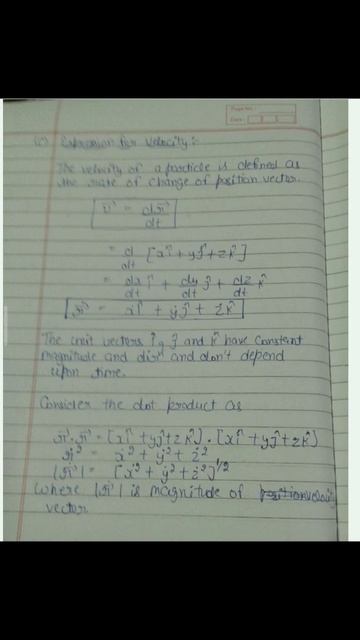 Page No.:
Date:
(c) Expression for Velocity :-
The velocity of a particle is defined as
the rate of change of position vector.
v⃗ = dr⃗/dt
= d/dt [xî + yĵ + zk̂]
= dx/dt î + dy/dt ĵ + dz/dt k̂
ṙ⃗ = ẋî + ẏĵ + żk̂
The unit vectors î, ĵ and k̂ have constant
magnitude and dirⁿ and don't depend
upon time.
Consider the dot product as
ṙ⃗.ṙ⃗ = [ẋî + ẏĵ + żk̂] . [ẋî + ẏĵ + żk̂]
ṙ² = ẋ² + ẏ² + ż²
|ṙ⃗| = [ẋ² + ẏ² + ż²]^1/2
where |ṙ⃗| is magnitude of velocity
vector